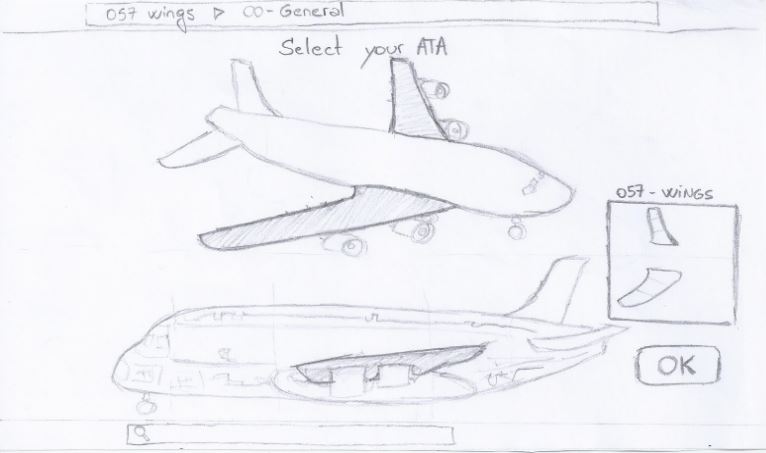 057 wings ▷ 00-General
Select your ATA
057-WINGS
OK